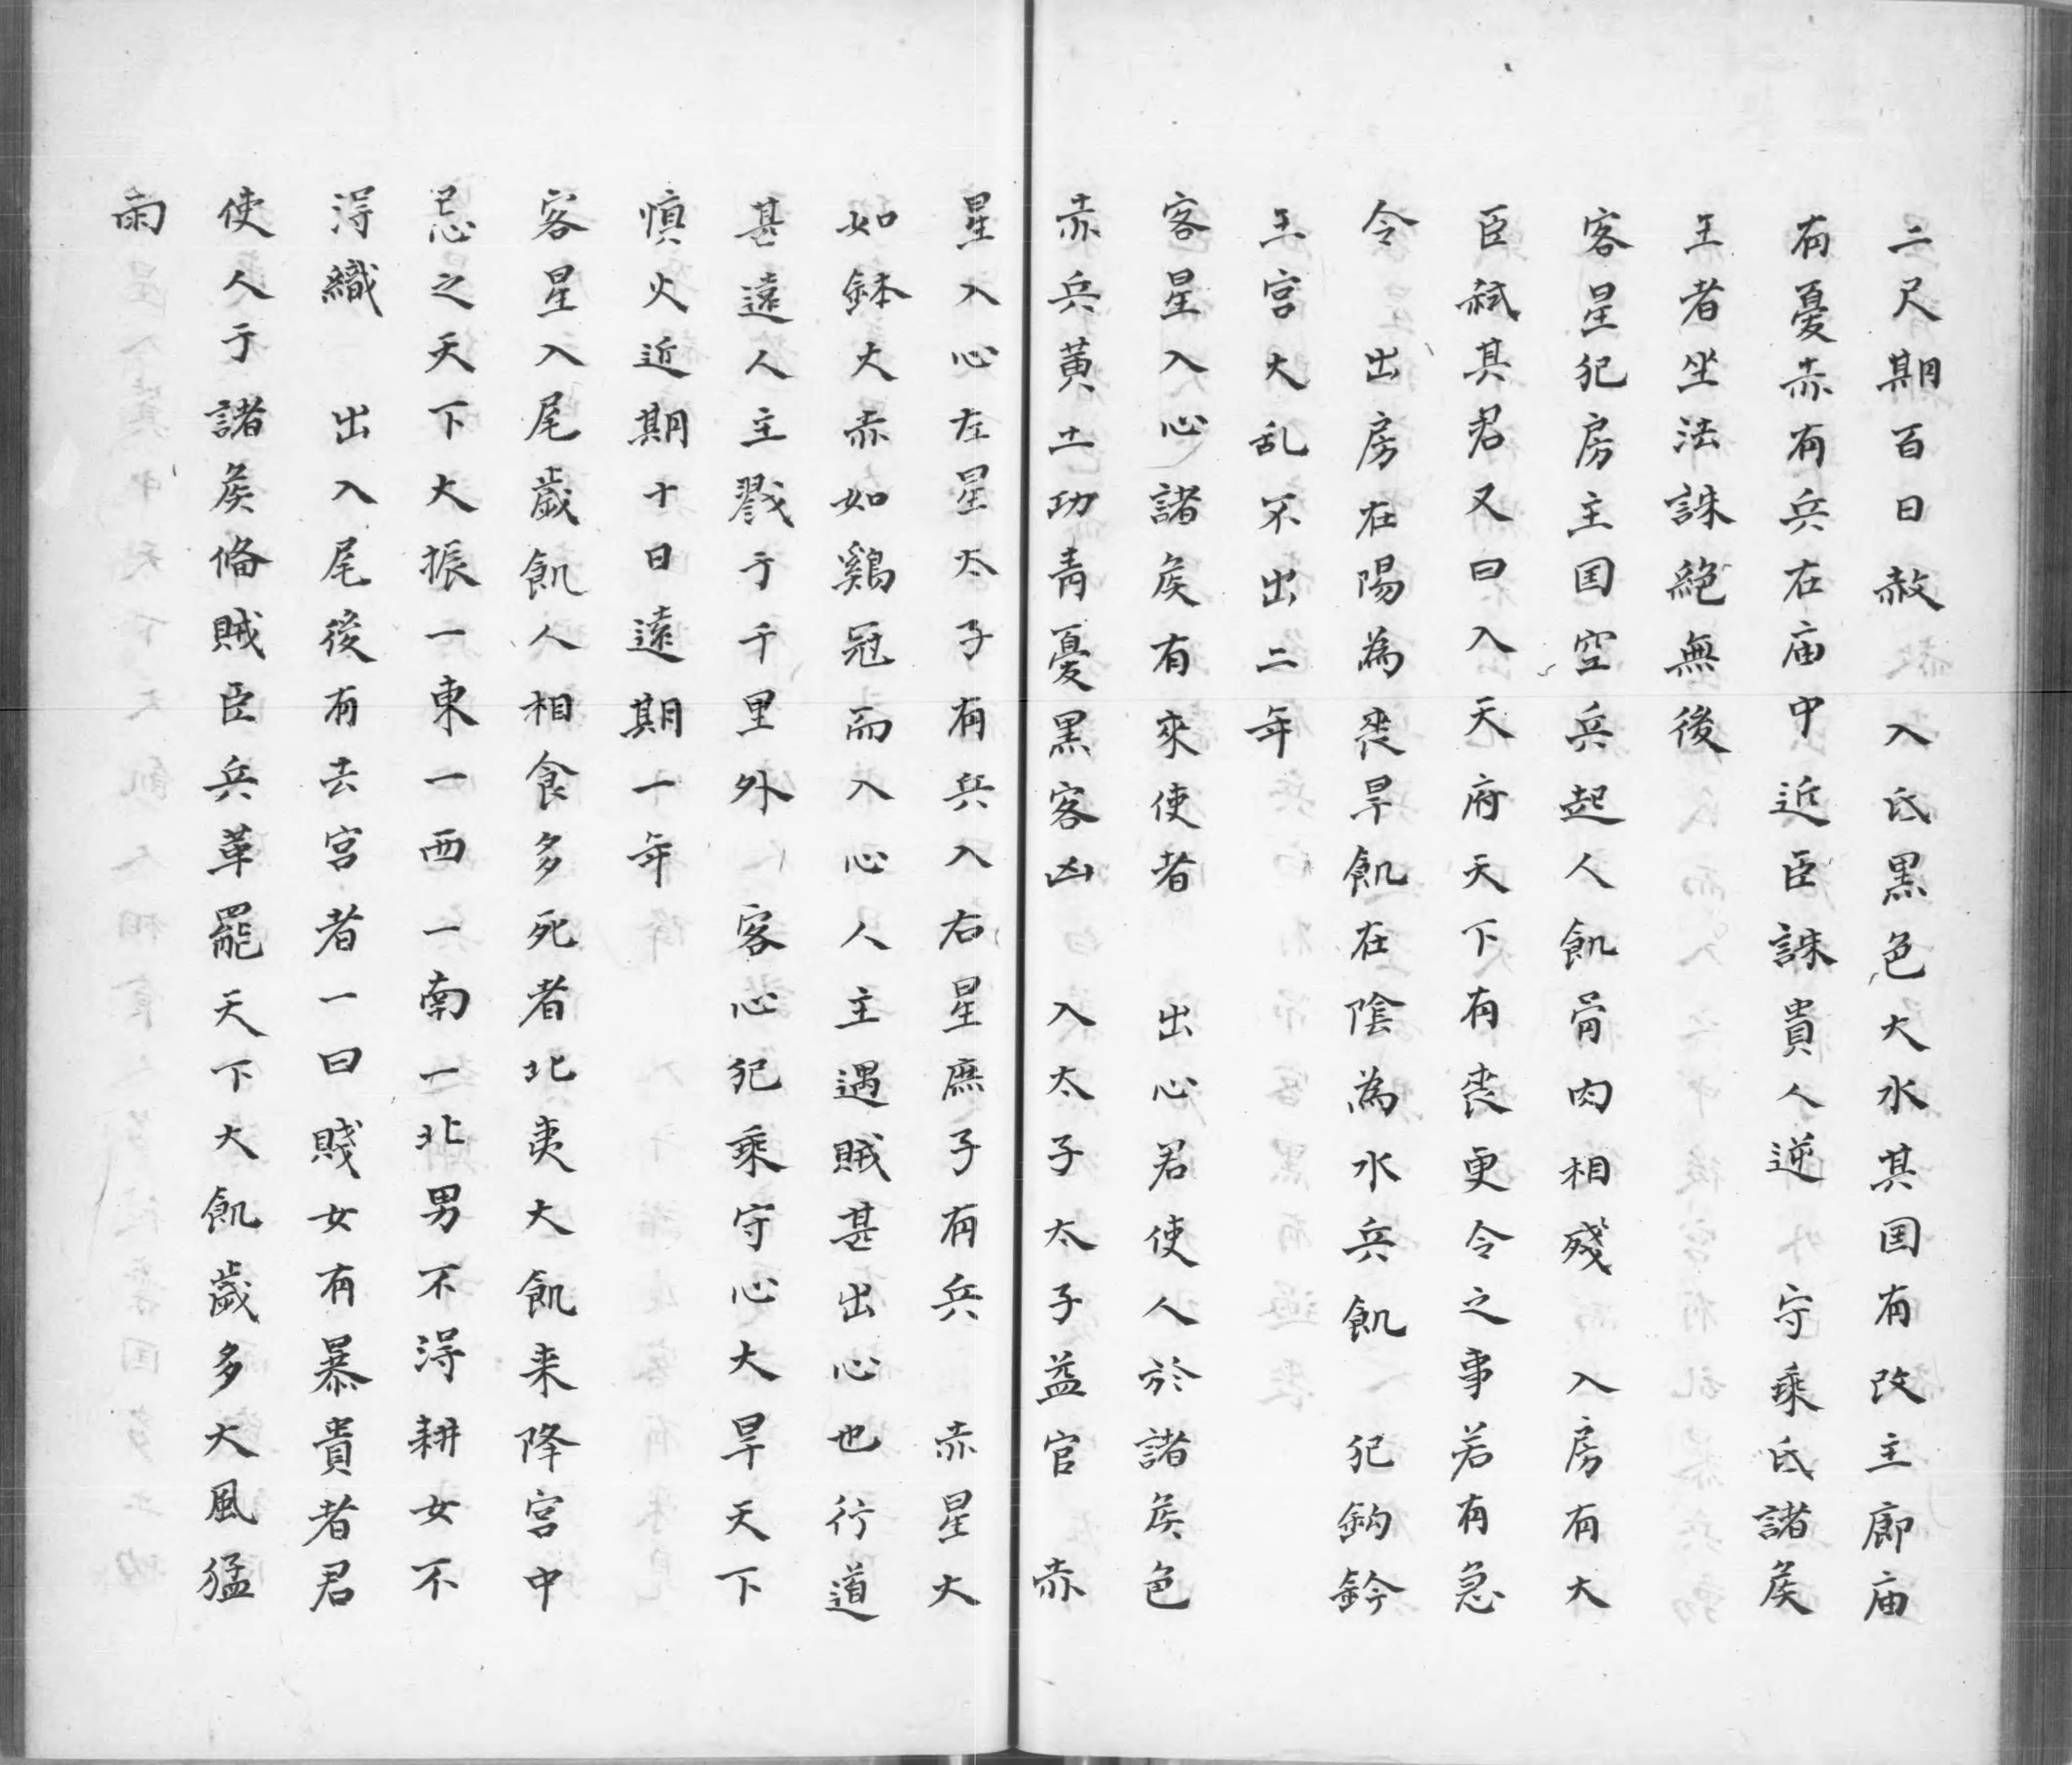 二尺期百日赦　入氐黒色大水其国有改主廊庙
有憂赤有兵在庙中　近臣誅貴人逆　守乘氐諸矦
王者坐法誅絶無後
客星犯房主国空兵起人飢骨肉相殘　入房有大
臣弑其君又曰入天府天下有丧更令之事若有急
令　出房在陽為丧旱飢在陰為水兵飢　犯鈎鈐
王宮大乱不出二年
客星入心諸矦有來使者　出心君使人於諸矦色
赤兵黄土功青憂黒客凶　入太子太子益官　赤
星入心左星太子有兵入右星庶子有兵　赤星大
如鉢大赤如鷄冠而入心人主遇賊甚出心也行道
甚遠人主戮于千里外　客心犯乘守心大旱天下
慎火近期十日遠期一年
客星入尾歲飢人相食多死者北夷大飢来降宮中
忌之天下大振一東一西一南一北男不淂耕女不
淂織　出入尾後有去宮者一曰賤女有暴貴者君
使人于諸矦偹賊臣兵革罷天下大飢歲多大風猛
雨